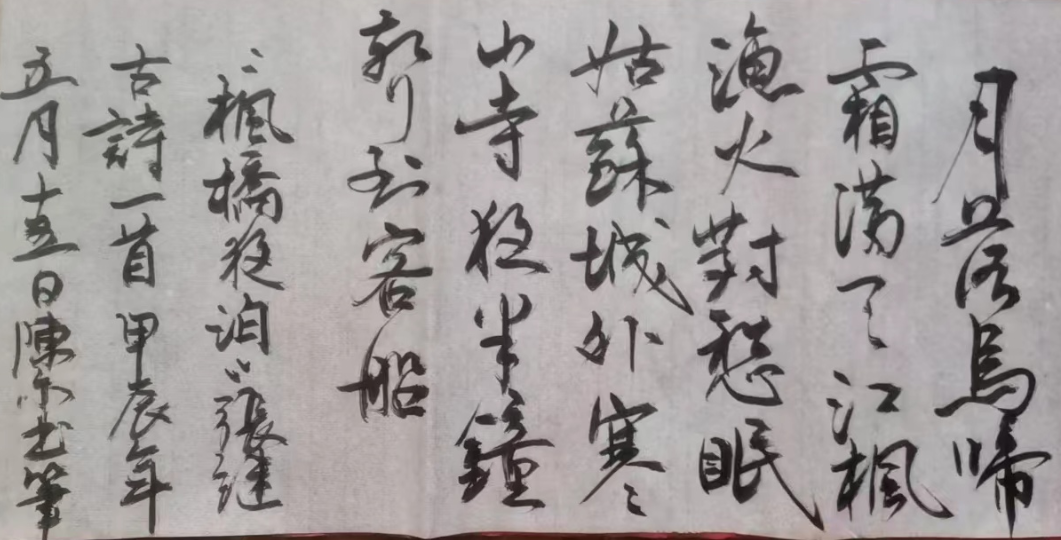 月落烏啼
霜滿天江楓
漁火對愁眠
姑蘇城外寒
山寺夜半鐘
聲到客船
〝楓橋夜泊〞張継
古詩一首 甲辰年
五月十五日陳筆